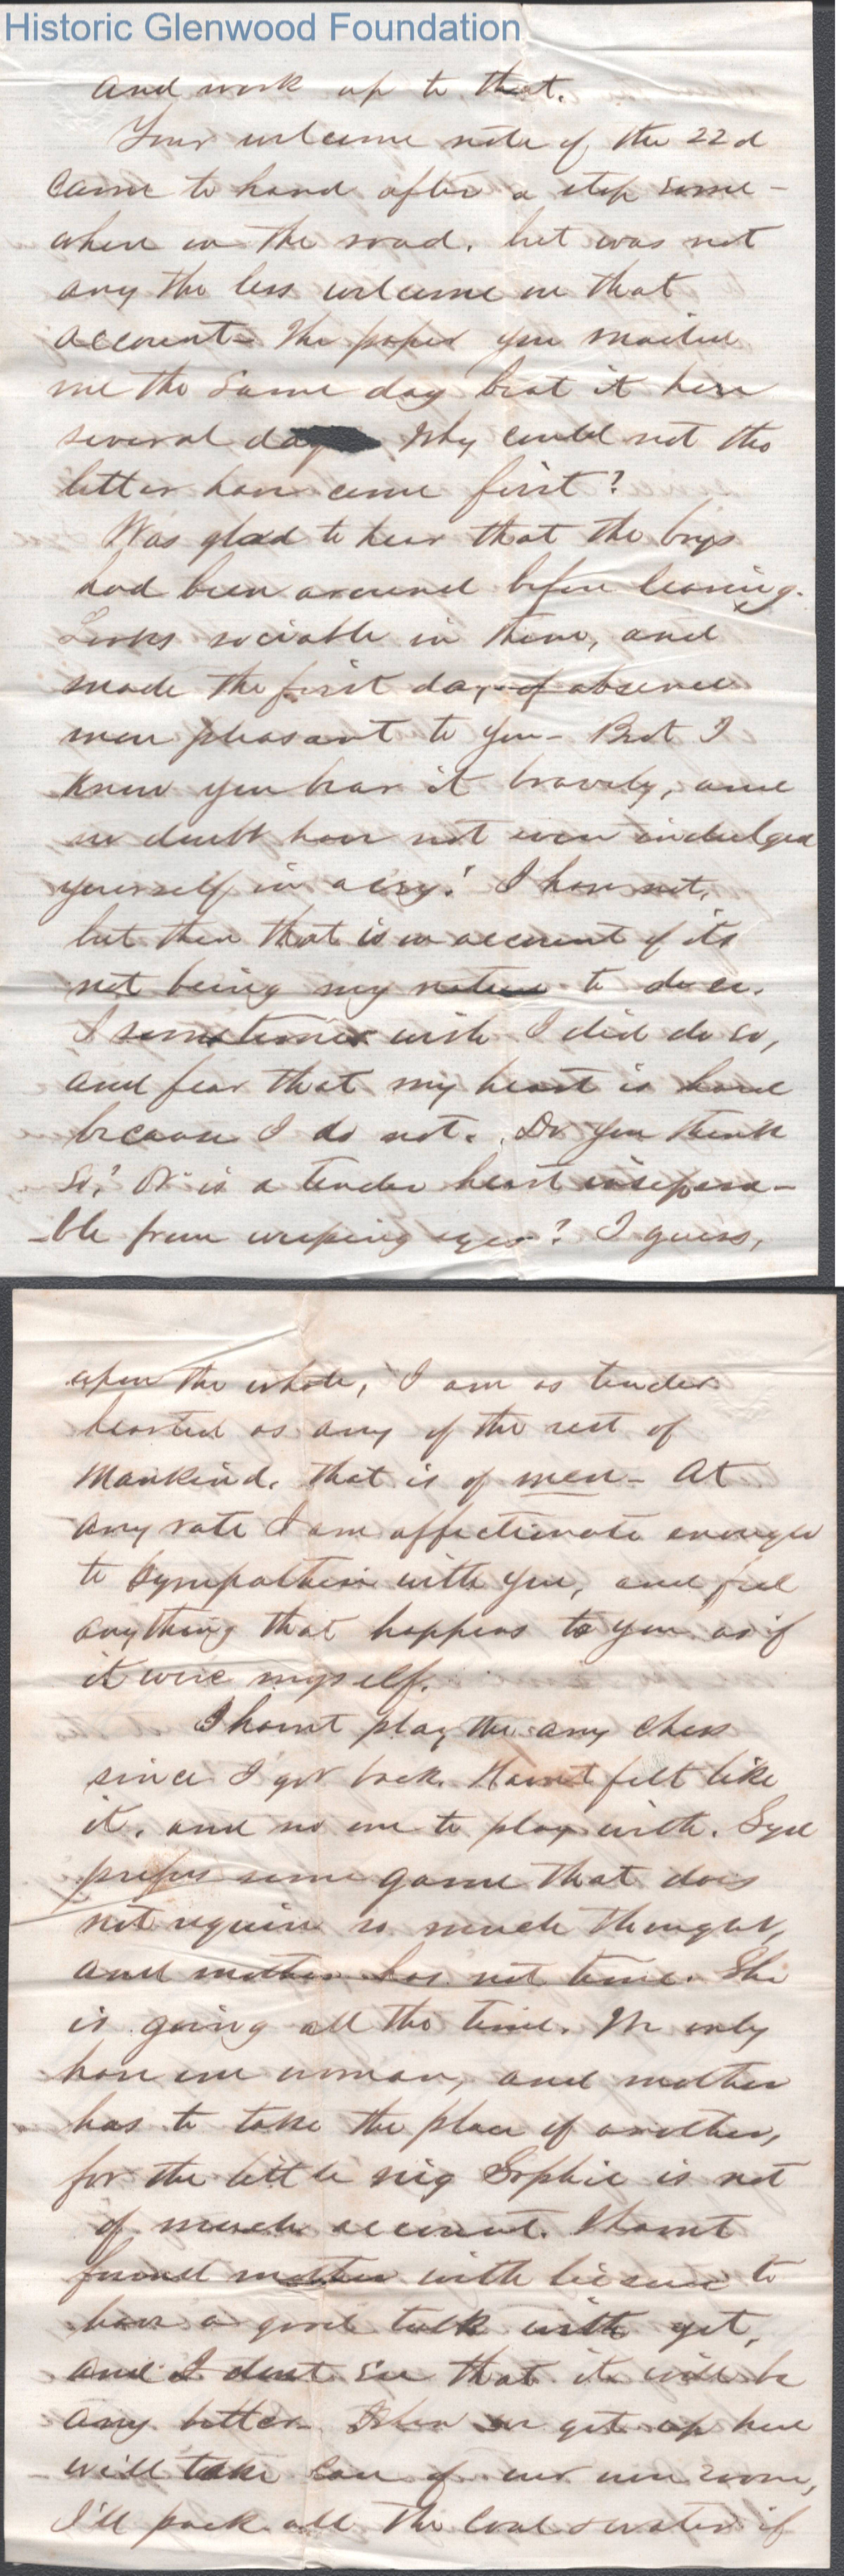 Historic Glenwood Foundation
and work up to that.
Your welcome note of the 22d
came to hand after a stop some-
where on the road. but was not
any the less welcome on that
account - The paper you mailed
me the same day beat it here
several days Why could not the
letter have come first?
Was glad to hear that the boys
had been around before leaving.
Looks sociable in them, and
made the first day of absence
more pleasant to you - But I
know you bear it bravely, and
no doubt have not even indulged
yourself in a cry! I have not,
but then that is on account of its
not being my nature to do so.
I sometimes wish I did do so,
and fear that my heart is hard
because I do not. Do you think
so? Or is a tender heart insepera-
-ble from weeping eyes? I guess,
upon the whole, I am as tender
hearted as any of the rest of
Mankind. that is of men - At
any rate I am affectionate enough
to sympathise with you, and feel
anything that happens to you as if
it were myself.
I havnt play the any chess
since I got back. Havnt felt like
it, and no one to play with. Syd
prefers some game that does
not require so much thought,
and mother has not time. She
is going all the time. We only
have one woman, and mother
has to take the place of another,
for the little nig Sophie is not
of much account. I havnt
found mother with liesure to
have a good talk with yet,
and I dont see that it will be
any better. When we get up here
will take care of our own room,
I'll pack all the coal & water if